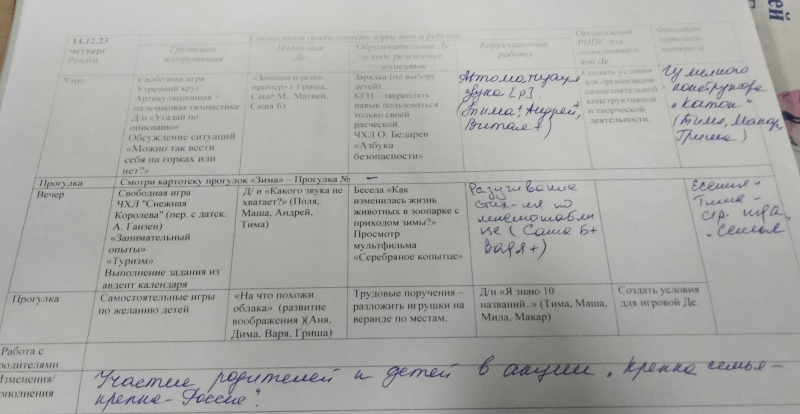 14.12.23
четверг
Режим
Совместная деятельность взрослого и ребенка
Групповая
подгрупповая
Индив-ная
Де
Образовательная Де
в ходе режимных
моментов
Коррекционная
работа
Организация
РППС для
ной Де
Фиксация
детского
интереса
Утро
Свободная игра
Утренний круг
Артикуляционная +
пальчиковая гимнастика
Д/и «Угадай по
описанию»
Обсуждение ситуаций
«Можно так вести
себя на горках или
нет?»
«Запиши и реши
пример» ( Гриша,
Саша М. Матвей,
Саша Б)
Зарядка (по выбору
детей).
КГН – закреплять
навык пользоваться
только своей
расческой.
ЧХЛ О. Бедарев
«Азбука
безопасности»
Автоматизация
звука [р].
(Тима+, Андрей+,
Виталя+)
Создать условия
для организации
самостоятельной
конструктивной
и творческой
деятельности.
конструктора
"Каток"
(Тима, Макар,
Гриша)
Прогулка
Смотри картотеку прогулок «Зима» – Прогулка № –
Вечер
Свободная игра
ЧХЛ "Снежная
Королева" (пер. с датск.
А. Ганзен)
«Занимательный
опыты»
«Туризм»
Выполнение задания из
авдент календаря
Д/ и «Какого звука не
хватает?» (Поля,
Маша, Андрей,
Тима)
Беседа «Как
изменилась жизнь
животных в зоопарке с
приходом зимы?»
Просмотр
мультфильма
«Серебряное копытце»
Разучивание
стих-ия по
мнемотабли
це ( Саша Б+
Варя+)
Есения+
Тима –
с/р игра
"Семья
Прогулка
Самостоятельные игры
по желанию детей
«На что похожи
облака» (развитие
воображения )(Аня,
Дима, Варя, Гриша)
Трудовые поручения –
разложить игрушки на
веранде по местам.
Д/и «Я знаю 10
названий..» (Тима, Маша,
Мила, Макар)
Создать условия
для игровой Де.
Работа с
родителями
Изменения/
дополнения
Участие родителей и детей в акции "Крепка семья –
крепка – Россия".